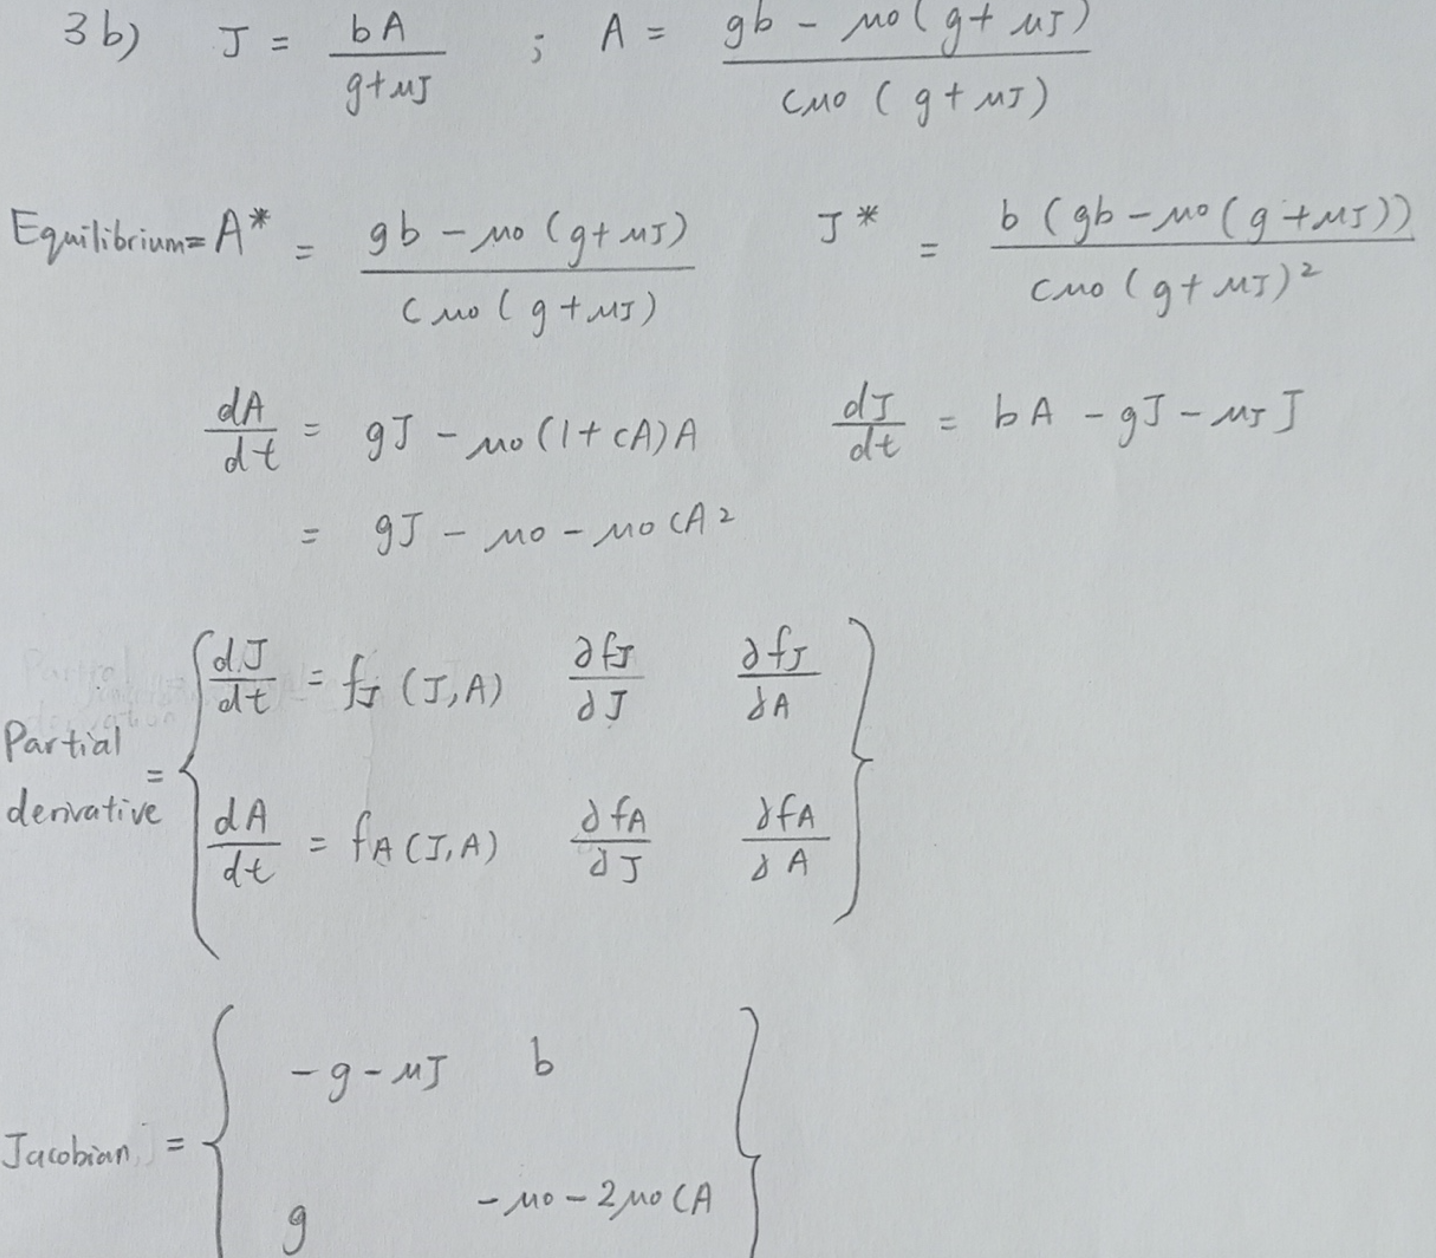 3b) J = bA / g+μJ ; A = gb - μ0(g+μJ) / cμ0(g+μJ)
Equilibrium= A* = gb - μ0(g+μJ) / cμ0(g+μJ) J* = b(gb-μ0(g+μJ)) / cμ0(g+μJ)²
dA/dt = gJ - μ0(1+cA)A dJ/dt = bA - gJ - μJ J
= gJ - μ0 - μ0cA²
Partial derivative = { dJ/dt = fJ(J,A) ∂fJ/∂J ∂fJ/∂A
dA/dt = fA(J,A) ∂fA/∂J ∂fA/∂A }
Jacobian = { -g-μJ b
g -μ0-2μ0cA }